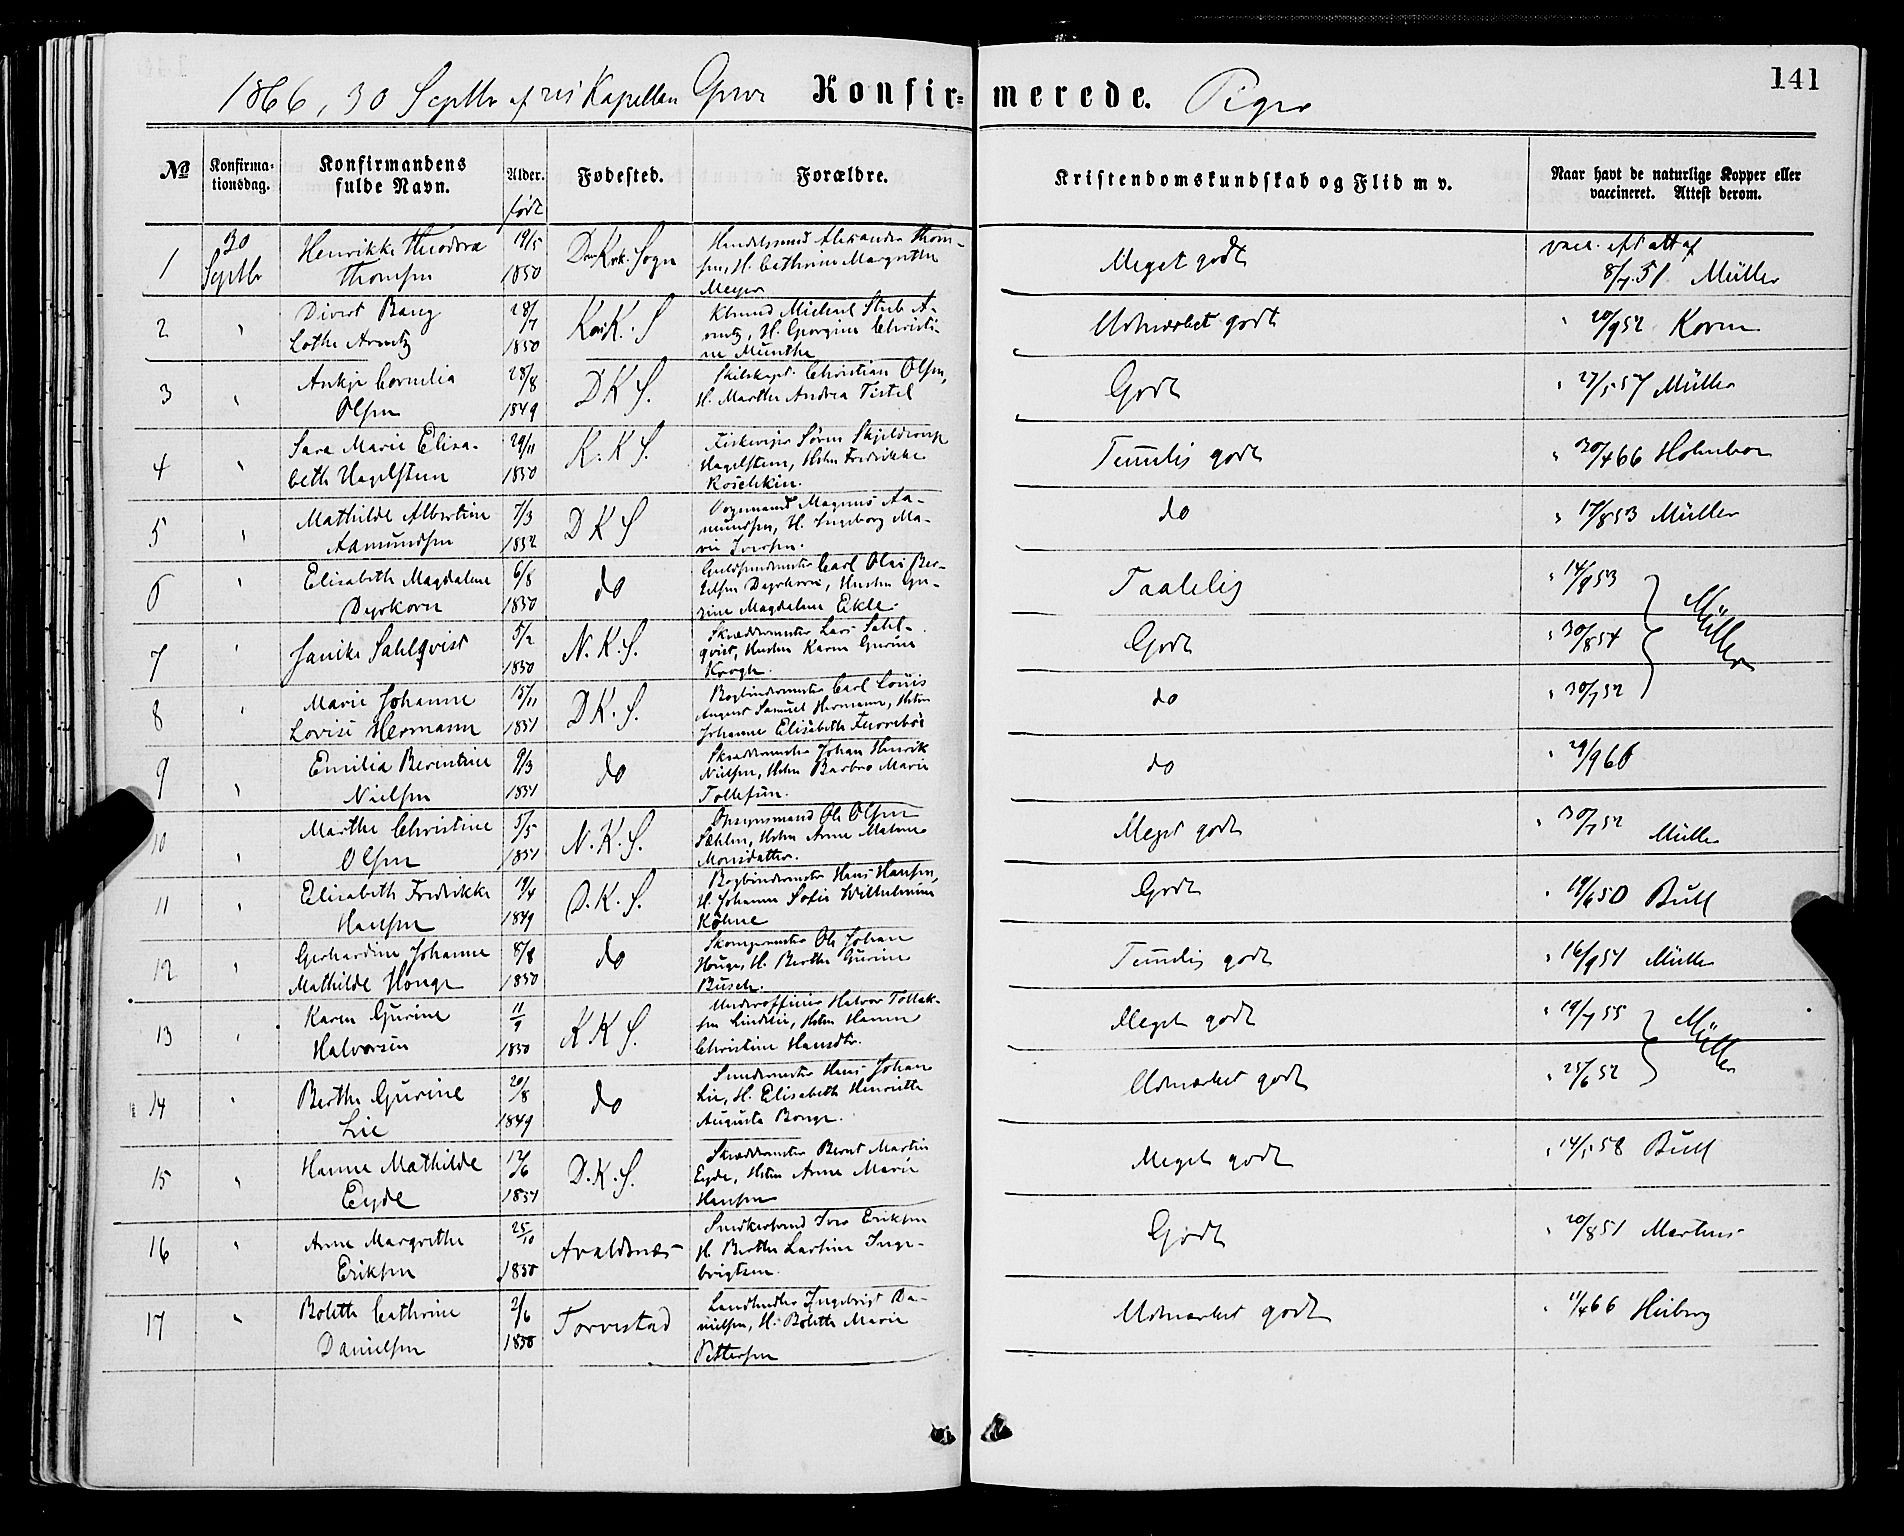 141
1866, 30 Septbr af res Kapellan Konfir= merede. Piger
No Konfirma=tionsdag. Konfirmandens fulde Navn. Alder. født Fødested. Forældre. Kristendomskundskab og Flid m v. Naar havt de naturlige Kopper eller vaccineret. Attest derom.
1 30 Septbr Henrikke Theodora 19/5 Dom Kirk. Sogn Handelsmand Alexander Thom- Meget godt vacc. eft att af
Thomsen 1850 sen, H. Cathrine Margrethe 8/7 51 Müller
Meyer
2 " Divert Bang 28/7 Kors K. S Kbmand Michael Stub A- Udmærket godt " 20/9 52 Koren
Lothe Arentz 1850 rentz, H. Georgine Christi-
ne Munthe
3 " Ankje Cornelia 28/8 D K S. Skibskapt. Christian Olsen, Godt " 27/5 57 Müller
Olsen 1849 H. Marthe Andrea Tistel
4 " Sara Marie Elisa- 29/11 K. K S. Søren Skjelderup Temmelig godt " 30/4 66 Holmboe
beth Hagelsteen 1850 Hagelsteen, Hstru Fredrikke
5 " Mathilde Albertine 7/3 D K S Vognmand Magnus Aa- do " 17/8 53 Müller
Aamundsen 1852 mundsen, H. Ingeborg Ma-
rie Iversen.
6 " Elisabeth Magdalene 6/8 do Guldsmedmester Carl Olai Ber- Taalelig " 14/9 53
Dyrkorn 1850 telsen Dyrkorn, Hustru Gu-
rine Magdalene Ekle. Müller
7 " Janike Sahlqvist 5/2 N. K. S. Skræddermester Lars Sahl- Godt " 30/8 54
1850 qvist, Hustru Karen Gurine
Krogh.
8 " Marie Johanne 15/11 D K. S. Bogbindermester Carl Louis do " 30/7 52
Lovise Hermann 1851 August Samuel Hermann, Hstru
Johanne Elisabeth
9 " Emilia Berentine 9/3 do Skræddermester Johan Henrik do " 29/9 66
Nielsen 1851 Nielsen, Hstru Barbro Marie
Tollefsen.
10 " Marthe Christine 5/5 N. K. S. Opsynsmand Ole Olsen Meget godt " 30/7 52 Müller
Olsen 1851 Hstru Anne Malene
Monsdatter.
11 " Elisabeth Fredrikke 19/4 D. K. S. Bogbindermester Hans Hansen, Godt " 19/6 50 Bull
Hansen 1849 H. Johanne Sofie Wilhelmine
Köhne
12 " Gerhardine Johanne 8/8 do Skomagermester Ole Johan Temmelig godt " 16/9 51 Müller
Mathilde Houge 1850 Houge, H. Berthe Gurine
Busch.
13 " Karen Gurine 11/9 K K S. Underofficier Halvor Tollak- Meget godt " 19/7 55
Halvorsen 1850 sen Lindtvie, Hstru Hanne Müller
Christine Hansdtr.
14 " Berthe Gurine 20/8 do Smedmester Hans Johan Udmærket godt " 25/6 52
Lie 1849 Lie, H. Elisabeth Henriette
Augusta Bonge.
15 " Hanne Mathilde 12/6 D. K. S. Skræddermester Bernt Martin Meget godt " 14/1 58 Bull
Eyde 1851 Eyde, Hstru Anne Marie
Hansen
16 " Anne Margrethe 25/10 Avaldsnæs Snedkersvend Iver Eriksen Godt " 20/8 51 Martens
Eriksen 1850 H. Berthe Lartine Inge-
brigtsen.
17 " Bolette Cathrine 2/6 Torvestad Landhandler Ingebrigt Da- Udmærket godt " 11/4 66 Heiberg
Danielsen 1850 nielsen, H. Bolette Marie
Pettersen